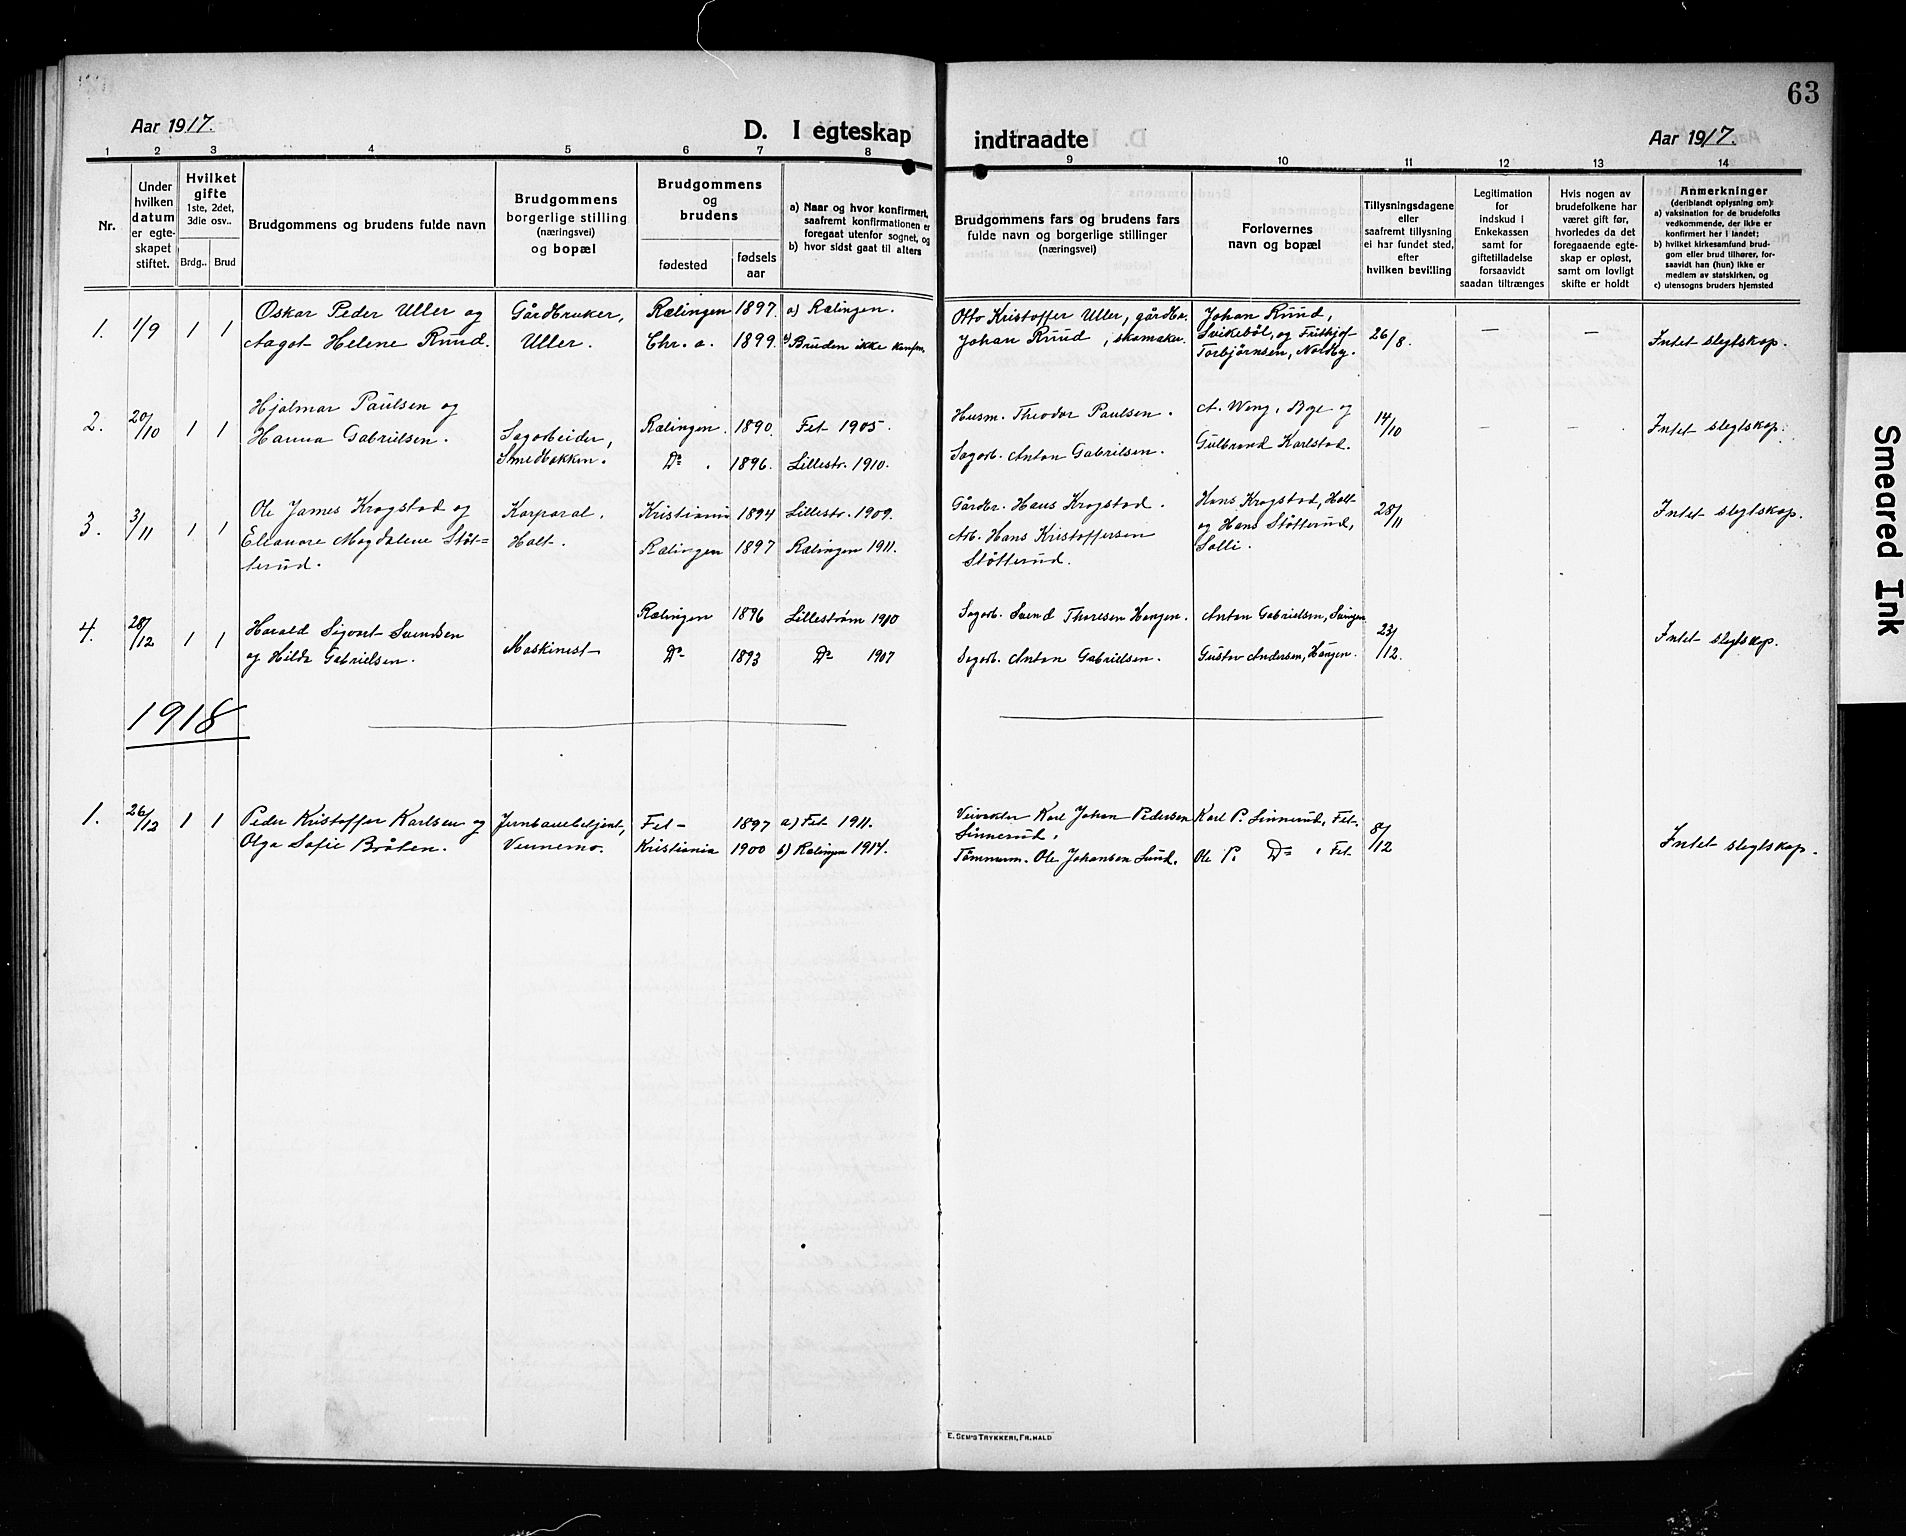 63
Aar 1917.
D. I egteskap
indtraadte
Aar 1917.
1 2 3 4 5 6 7 8 9 10 11 12 13 14
Nr.
Under
hvilken
datum
er egte-
skapet
stiftet.
Hvilket
gifte
1ste, 2det,
3die osv..
Brdg.. Brud
Brudgommens og brudens fulde navn
Brudgommens
borgerlige stilling
(næringsvei)
og bopæl
Brudgommens
og
brudens
fødested
fødsels
aar
a) Naar og hvor konfirmert,
saafremt konfirmationen er
foregaat utenfor sognet, og
b) hvor sidst gaat til alters
Brudgommens fars og brudens fars
fulde navn og borgerlige stillinger
(næringsvei)
Forlovernes
navn og bopæl
Tillysningsdagene
eller
saafremt tillysning
ei har fundet sted,
efter
hvilken bevilling
Legitimation
for
indskud i
Enkekassen
samt for
giftetilladelse
forsaavidt
saadan tiltrænges
Hvis nogen av
brudefolkene har
været gift før,
hvorledes da det
foregaaende egte-
skap er opløst,
samt om lovligt
skifte er holdt
Anmerkninger
(deriblandt oplysning om):
a) vaksination for de brudefolks
vedkommende, der ikke er
konfirmert her i landet;
b) hvilket kirkesamfund brud-
gom eller brud tilhører, for-
saavidt han (hun) ikke er
medlem av statskirken, og
c) utensogns bruders hjemsted
1. 1/9 1 1
Oskar Peder Uller og
Aagot Helene Ruud.
Gårdbruker,
Uller.
Rælingen 1897. a) Rælingen.
Chr. a. 1899. Bruden ikke konfm.
Otto Kristoffer Uller, gårdbr.
Johan Ruud, skomaker.
Johan Ruud,
Svikebøl, og Frithjof
Torbjørnsen, Nordby.
26/8. — —
Intet slegtskap.
2. 20/10 1 1
Hjalmar Paulsen og
Hanna Gabrielsen.
Sagarbeider,
Smedbakken.
Rælingen. 1890. Fet 1905.
Do. 1896. Lillestr. 1910.
Husm. Theodor Paulsen.
Sagarb. Anton Gabrielsen.
A. Weng, Bye og
Gulbrand Karlstad.
14/10 — —
Intet slegtskap.
3. 3/11 1 1
Ole James Krogstad og
Eleanore Magdalene Støt=
terud.
Korporal.
Holt.
Kristiania 1894 Lillestr. 1909.
Rælingen 1897 Rælingen 1911.
Gårdbr. Hans Krogstad.
Arb. Hans Kristoffersen
Støtterud.
Hans Krogstad, Holt
og Hans Støtterud,
Solli.
28/11
Intet slegtskap.
4. 28/12 1 1
Harald Sigvart Svendsen
og Hilda Gabrielsen.
Maskinist
Rælingen 1896 Lillestrøm 1910
Do 1893 Do 1907
Sagarb. Svend Thoresen Haugen.
Sagarb. Anton Gabrielsen.
Anton Gabrielsen, Svingen
Gustav Andersen, Haugen.
23/12.
Intet slegtskap.
1918
1. 26/12 1 1
Peder Kristoffer Karlsen og
Olga Sofie Bråten.
Jernbanebetjent,
Vennemo.
Fet 1897 a) Fet 1911.
Kristiania 1900 b) Rælingen 1914.
Veivokter Karl Johan Pedersen
Sinnerud.
Tømmerm. Ole Johansen Lund.
Karl P. Sinnerud, Fet.
Ole P. Do, Fet
8/12
Intet slegtskap.
E. SEM'S TRYKKERI, FR.HALD
Smeared Ink